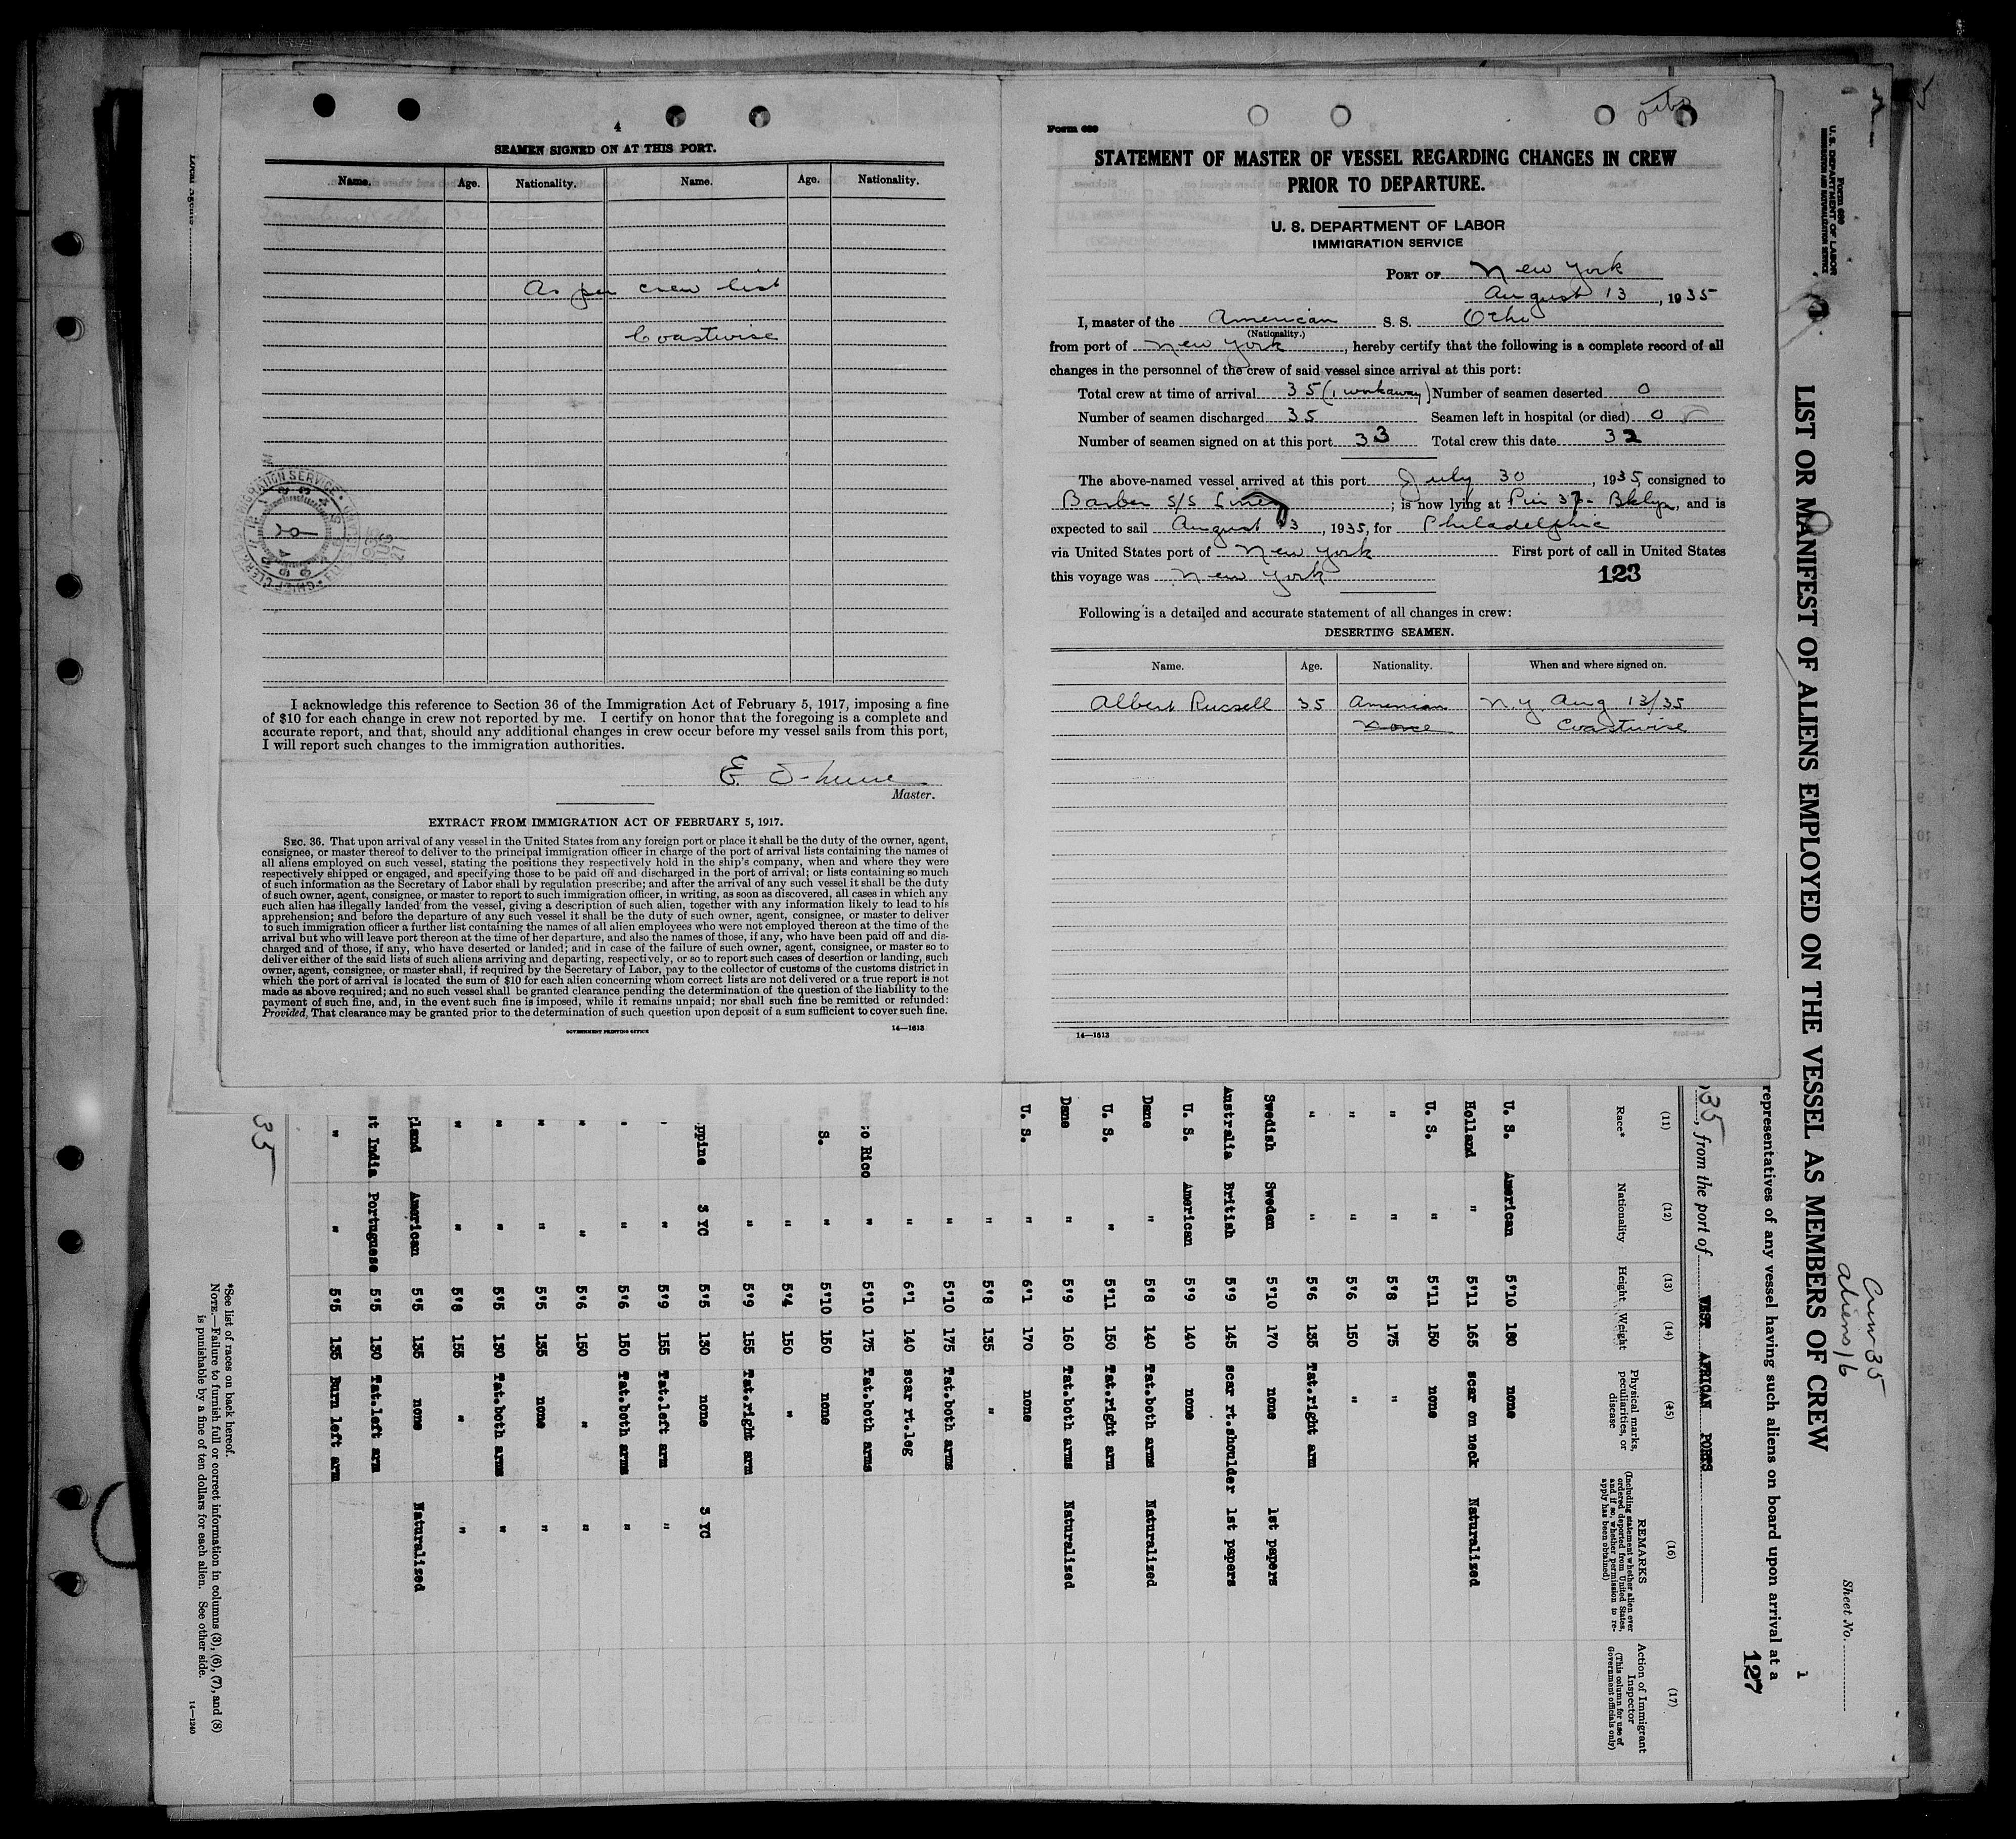 4
SEAMEN SIGNED ON AT THIS PORT.
Name. Age. Nationality. Name. Age. Nationality.
As per crew list
Coastwise
I acknowledge this reference to Section 36 of the Immigration Act of February 5, 1917, imposing a fine
of $10 for each change in crew not reported by me. I certify on honor that the foregoing is a complete and
accurate report, and that, should any additional changes in crew occur before my vessel sails from this port,
I will report such changes to the immigration authorities.
E.
Master.
EXTRACT FROM IMMIGRATION ACT OF FEBRUARY 5, 1917.
SEC. 36. That upon arrival of any vessel in the United States from any foreign port or place it shall be the duty of the owner, agent,
consignee, or master thereof to deliver to the principal immigration officer in charge of the port of arrival lists containing the names of
all aliens employed on such vessel, stating the positions they respectively hold in the ship's company, when and where they were
respectively shipped or engaged, and specifying those to be paid off and discharged in the port of arrival; or lists containing so much
of such information as the Secretary of Labor shall by regulation prescribe; and after the arrival of any such vessel it shall be the duty
of such owner, agent, consignee, or master to report to such immigration officer, in writing, as soon as discovered, all cases in which any
such alien has illegally landed from the vessel, giving a description of such alien, together with any information likely to lead to his
apprehension; and before the departure of any such vessel it shall be the duty of such owner, agent, consignee, or master to deliver
to such immigration officer a further list containing the names of all alien employees who were not employed thereon at the time of the
arrival but who will leave port thereon at the time of her departure, and also the names of those, if any, who have been paid off and dis-
charged and of those, if any, who have deserted or landed; and in case of the failure of such owner, agent, consignee, or master so to
deliver either of the said lists of such aliens arriving and departing, respectively, or so to report such cases of desertion or landing, such
owner, agent, consignee, or master shall, if required by the Secretary of Labor, pay to the collector of customs of the customs district in
which the port of arrival is located the sum of $10 for each alien concerning whom correct lists are not delivered or a true report is not
made as above required; and no such vessel shall be granted clearance pending the determination of the question of the liability to the
payment of such fine, and, in the event such fine is imposed, while it remains unpaid; nor shall such fine be remitted or refunded:
Provided, That clearance may be granted prior to the determination of such question upon deposit of a sum sufficient to cover such fine.
GOVERNMENT PRINTING OFFICE 14—1613
Form 689
STATEMENT OF MASTER OF VESSEL REGARDING CHANGES IN CREW
PRIOR TO DEPARTURE.
U. S. DEPARTMENT OF LABOR
IMMIGRATION SERVICE
PORT OF New York
August 13, 1935
I, master of the American S. S. Otho
(Nationality.)
from port of New York, hereby certify that the following is a complete record of all
changes in the personnel of the crew of said vessel since arrival at this port:
Total crew at time of arrival 35 (1 workaway) Number of seamen deserted 0
Number of seamen discharged 35 Seamen left in hospital (or died) 0
Number of seamen signed on at this port 33 Total crew this date 32
The above-named vessel arrived at this port July 30, 1935, consigned to
Barber S/S Lines; is now lying at Pier 37 - Bklyn, and is
expected to sail August 13, 1935, for Philadelphia
via United States port of New York First port of call in United States
this voyage was New York
123
Following is a detailed and accurate statement of all changes in crew:
DESERTING SEAMEN.
Name. Age. Nationality. When and where signed on.
Albert Russell 35 American N.Y. Aug 13/35
None Coastwise
14—1613
Form 689
U. S. DEPARTMENT OF LABOR
IMMIGRATION AND NATURALIZATION SERVICE
Sheet No.
Crew 35
aliens 16
LIST OR MANIFEST OF ALIENS EMPLOYED ON THE VESSEL AS MEMBERS OF CREW
1
representatives of any vessel having such aliens on board upon arrival at a
127
35, from the port of WEST AFRICAN PORTS
(11) (12) (13) (14) (15) (16) (17)
Race* Nationality Height Weight Physical marks, peculiarities, or disease REMARKS (Including statement whether alien ever ordered deported from United States, and if so, whether permission to re-apply has been obtained) Action of Immigrant Inspector (This column for use of Government officials only)
U. S. American 5'10 180 none
Holland " 5'11 165 scar on neck Naturalized
U. S. " 5'11 150 none
" " 5'8 175 "
" " 5'6 150 "
" " 5'6 135 Tat.right arm
Swedish Sweden 5'10 170 none 1st papers
Australia British 5'9 145 scar rt.shoulder 1st papers
U. S. American 5'9 140 none
Dane " 5'8 140 Tat.both arms Naturalized
U. S. " 5'11 150 Tat.right arm
Dane " 5'9 160 Tat.both arms Naturalized
U. S. " 6'1 170 none
" 5'8 135 "
" 5'10 175 Tat.both arms
" 6'1 140 scar rt.leg
o Rico " 5'10 175 Tat.both arms
S. " 5'10 150 none
" 5'4 150 "
" 5'9 155 Tat.right arm
ppine 3 YC 5'5 130 none 3 YC
" " 5'9 155 Tat.left arm "
" " 5'6 150 Tat.both arms "
" " 5'6 150 " "
" " 5'5 135 none "
" " 5'5 130 Tat.both arms "
" " 5'8 155 " "
land American 5'5 135 none Naturalized
t India Portuguese 5'5 130 Tat.left arm
" " 5'5 135 Burn left arm
35
*See list of races on back hereof.
NOTE.—Failure to furnish full or correct information in columns (3), (6), (7), and (8)
is punishable by a fine of ten dollars for each alien. See other side.
14—1240
Local Agents